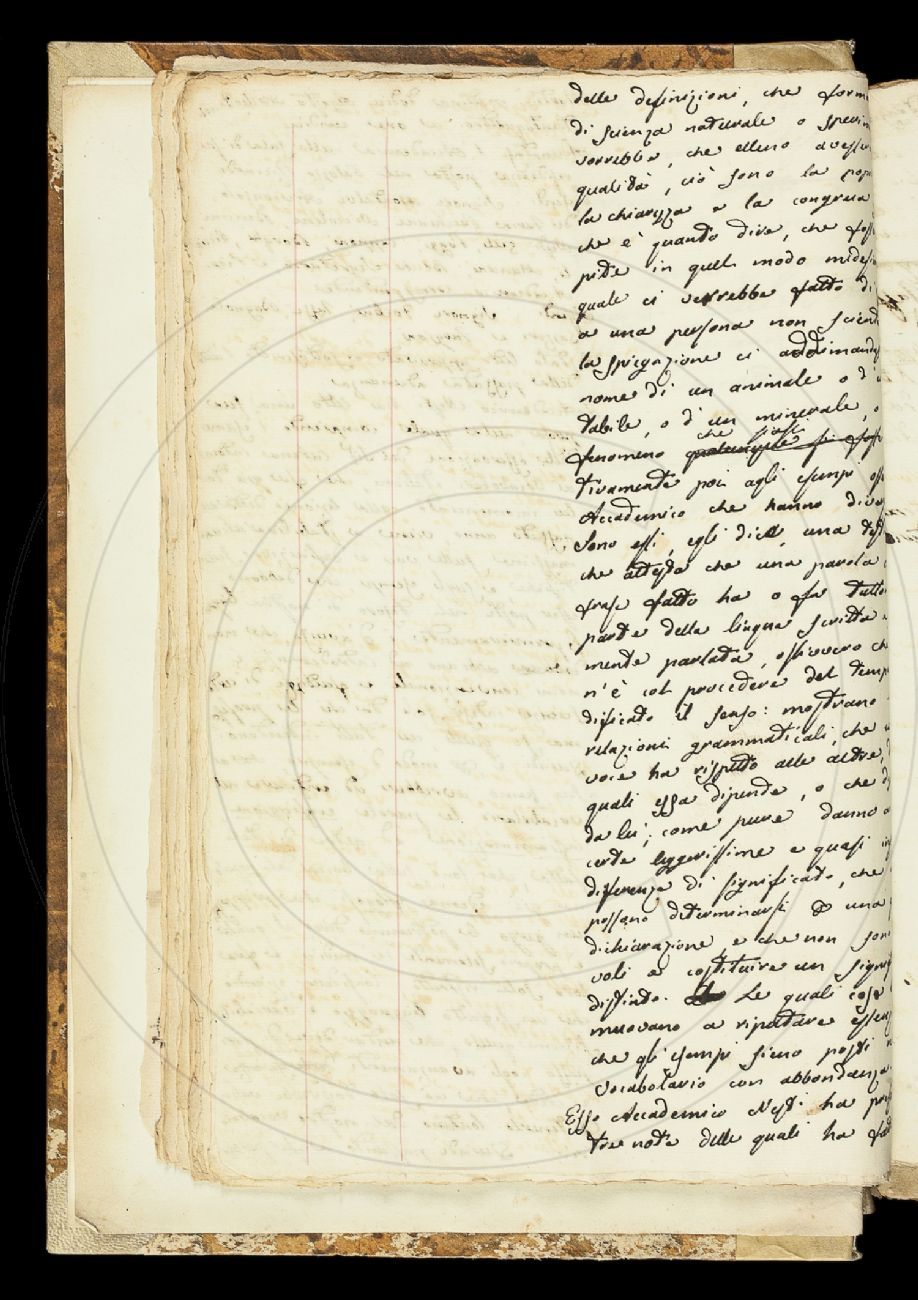 delle definizioni, che form
di scienza naturale o speri
vorrebbe, che elleno avesser
qualità, ciò sono la prop
la chiarezza e la congrua
che è quanto dire, che foss
pite in quel modo medesi
quale ci verrebbe fatto di
a una persona non scient
la spiegazione ci addimand
nome di un animale o d'
tabile, o d'un minerale, o
che siasi
fenomeno
tivamente poi agli esempi oss
Accademico che hanno diver
Sono essi, egli dice, una test
che attesta che una parola
frase fatto ha o fa tutto
parte della lingua scritta e
mente parlata, ossivvero ch
n'è col procedere del temp
dificato il senso: mostrano
relazioni grammaticali, che
voce ha rispetto alle altre,
quali essa dipende, o che d
da lei; come pure danno a
certe leggerissime e quasi in
differenze di significato, che
possono determinarsi una
dichiarazione e che non son
voli a costituire un signif
distinto. Le quali cose
muovano a riputare essen
che gli esempi sieno posti
Vocabolario con abbondanza
Esso Accademico Nesti ha pre
tre note delle quali ha fa